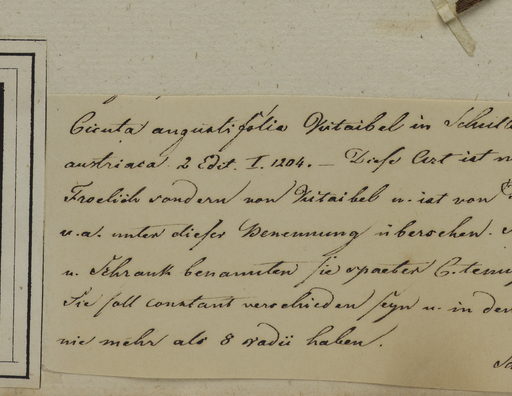 Cicuta angustifolia Kitaibel in Schult
austriaca 2 Edit. I. 1204. — Diese Art ist n
Froelich sondern von Kitaibel u. ist von
u. a. unter dieser Benennung übersehen.
u. Schrank benannten sie spaeter C. tenui
Sie soll constant verschieden seyn u. in den
nie mehr als 8 radii haben.